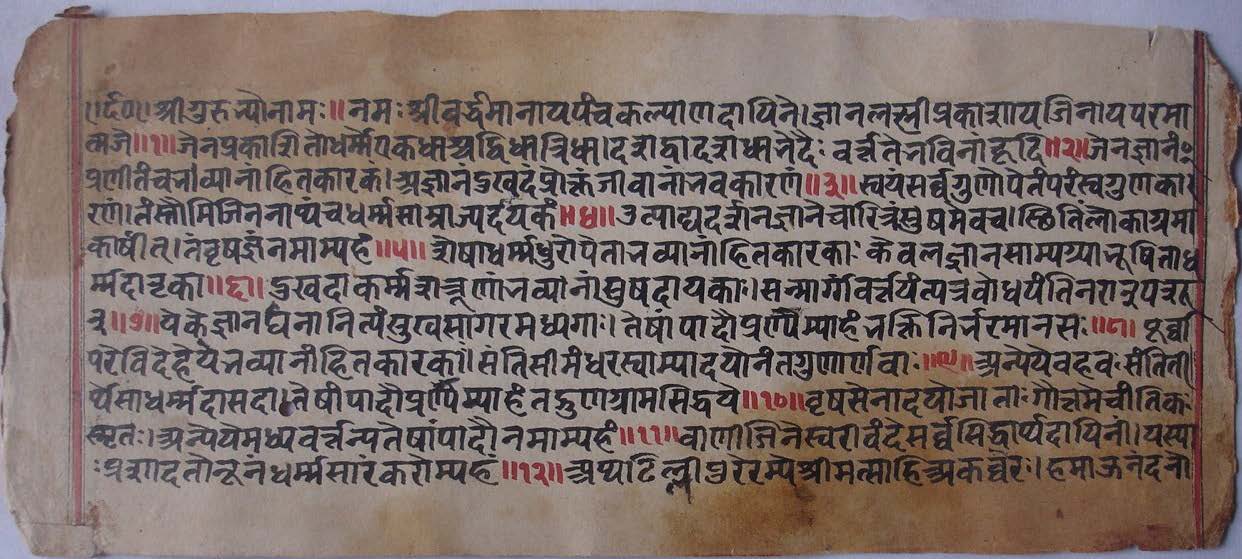 श्रीगुरुभ्योनामः॥नमःश्रीवर्द्धमानायपंचकल्याणदायिने।ज्ञानलक्ष्मीप्रकाशायजिनायपरमा
॥१॥जेनप्रकाशितोधर्म्मोएकधाश्चद्विधात्रिधा।दशद्वादशधाभेदैःवर्त्ततेभविनांहृदि॥२॥जेनज्ञानं
प्रणीतंचभव्यानांहितकारकं।अज्ञानदुखदंप्रोक्तंजीवानांभवकारणं॥३॥स्वयंसर्व्वगुणोपेतंपरंस्वगुणका
रणं।तंस्तौमिजिननाथंचधर्म्मसाम्राज्यदायकं॥४॥उत्पाद्यदर्शनज्ञानचारित्रंसुषमेवच।स्थितिंलोकाग्रमा
कार्षीत्।तंवृषज्ञंनमाम्यहं॥५॥शेषाधर्म्मधुरोपेताभव्यानांहितकारकाःकेवलज्ञानसाम्राज्यभूषिताध
र्म्मदानृका॥६॥दुखदाकर्म्मशत्रूणांभव्यानांसुषदायकाः।सन्मार्गा
॥७॥येकेज्ञानघनानित्यंसुखसागरमध्यगाः।तेषांपादौप्रणम्याहंभक्तिनिर्भरमानसः॥८॥पूर्व्वा
परेविदेहेयेभव्यानांहितकारका।संतिसीमंधरस्वाम्यादयोनंतगुणार्णवाः॥९॥अन्येयेवहवःसंतिती
र्थेसाधर्म्मदासदा।तेषांपादौप्रणम्याहंतद्गुणग्रामसिद्धये॥१०॥वृषसेनादयोजाताःगौत्तमे
अन्येयेमध्यवर्त्तन्यतेषांपादौनमाम्यहं॥११॥वाणीजिनेस्वरींवंदेसर्व्वसिद्धार्थदायिनीं।यस्या
ःप्रशादतोनूनंधर्म्मसारंकरोम्यहं॥१२॥अथढिल्लीपुरेरम्येश्रीमत्साहिअकव्वरः।हमाऊनंदनो